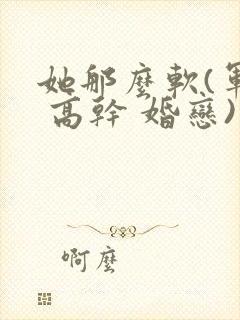 她那麼軟(軍
高幹 婚戀)
啊麼